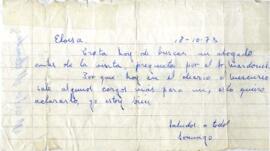 Eloisa 18-10-73
Trata hoy de buscar un abogado
antes de la visita pregunta por el Sr mardones
Por que hoy en el diario o mercurio
sale algunos cargos mas para mi, esto quiero
aclararlo, yo estoy bien
Saludos a todos
Domingo